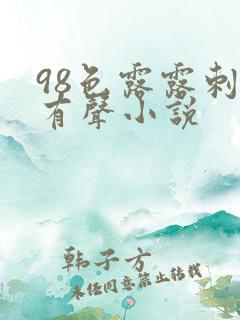 98色露露刺
有聲小說
韩子方
未经同意禁止转载